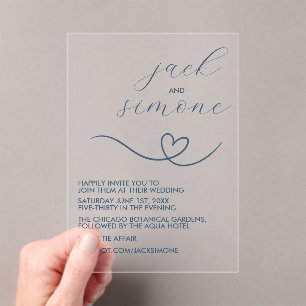 jack
AND
simone
HAPPILY INVITE YOU TO
JOIN THEM AT THEIR WEDDING
SATURDAY JUNE 1ST, 20XX
FIVE-THIRTY IN THE EVENING
THE CHICAGO BOTANICAL GARDENS,
FOLLOWED BY THE AQUA HOTEL
TIE AFFAIR
OT.COM/JACKSIMONE